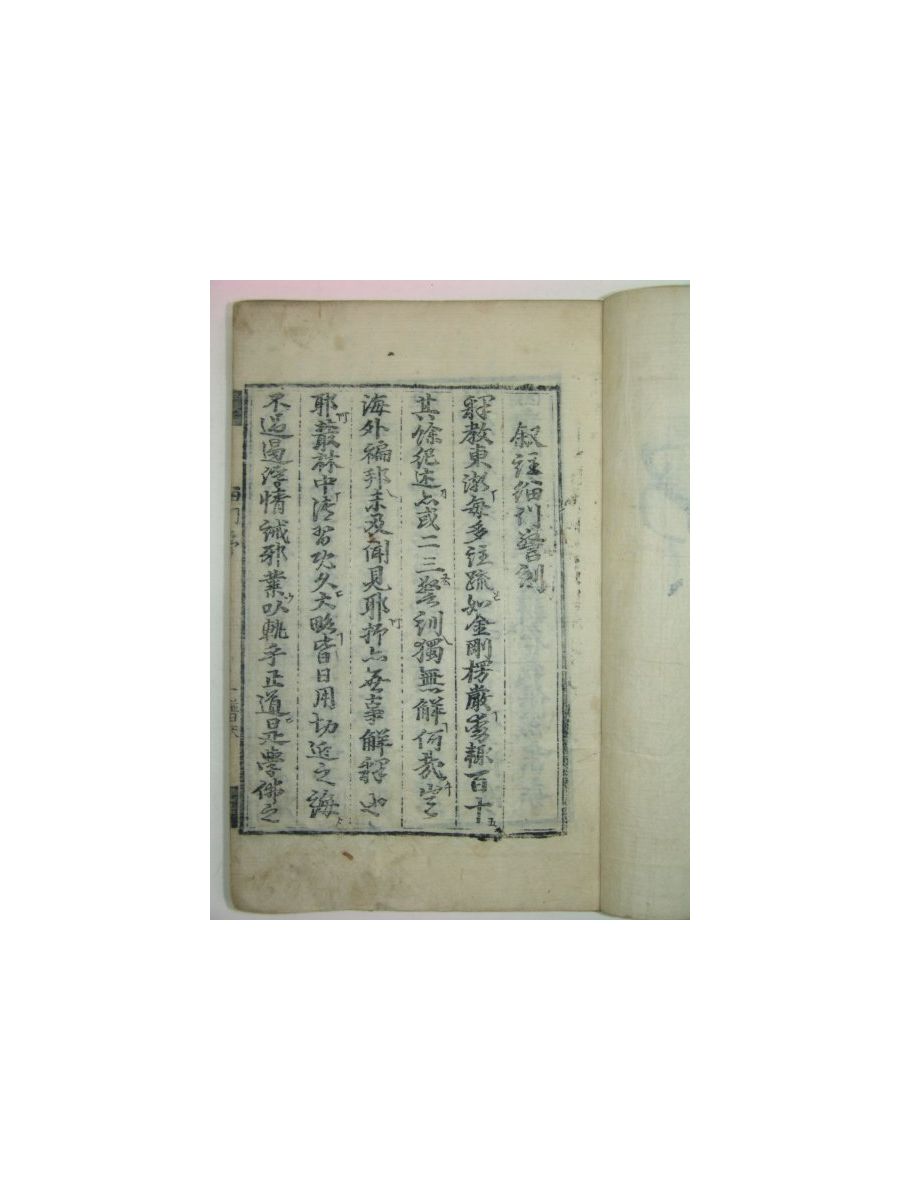 叙註緇門警訓
釋教東漸每多註疏如金剛楞嚴奚翅百十
其餘紀述亦或二三警訓獨無解何哉豈
海外編邦未及聞見耶抑亦無事解釋也
耶叢林中傳習既久大略皆日用切近之誨
不過遏浮情誡邪業以軌乎正道是學佛之